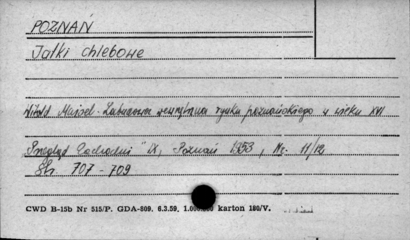 POZNAŃ
Jatki chlebowe
Witold Maisel - Zabudowa wewnętrzna rynku poznańskiego w wieku XVI
Przegląd Zachodni" IX, Poznań 1953, Nr. 11/12
Str. 707 - 709
CWD B-15b Nr 515/P. GDA-809. 6.3.59. karton 180/V.